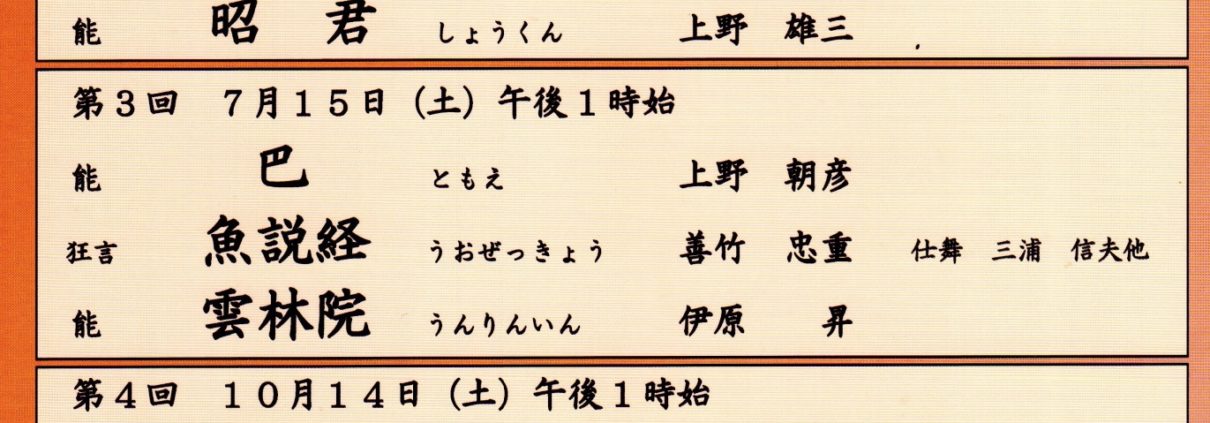 能　昭君　しょうくん　上野　雄三
第３回　７月１５日（土）午後１時始
能　巴　ともえ　上野　朝彦
狂言　魚説経　うおぜっきょう　善竹　忠重　仕舞　三浦　信夫他
能　雲林院　うんりんいん　伊原　昇
第４回　１０月１４日（土）午後１時始